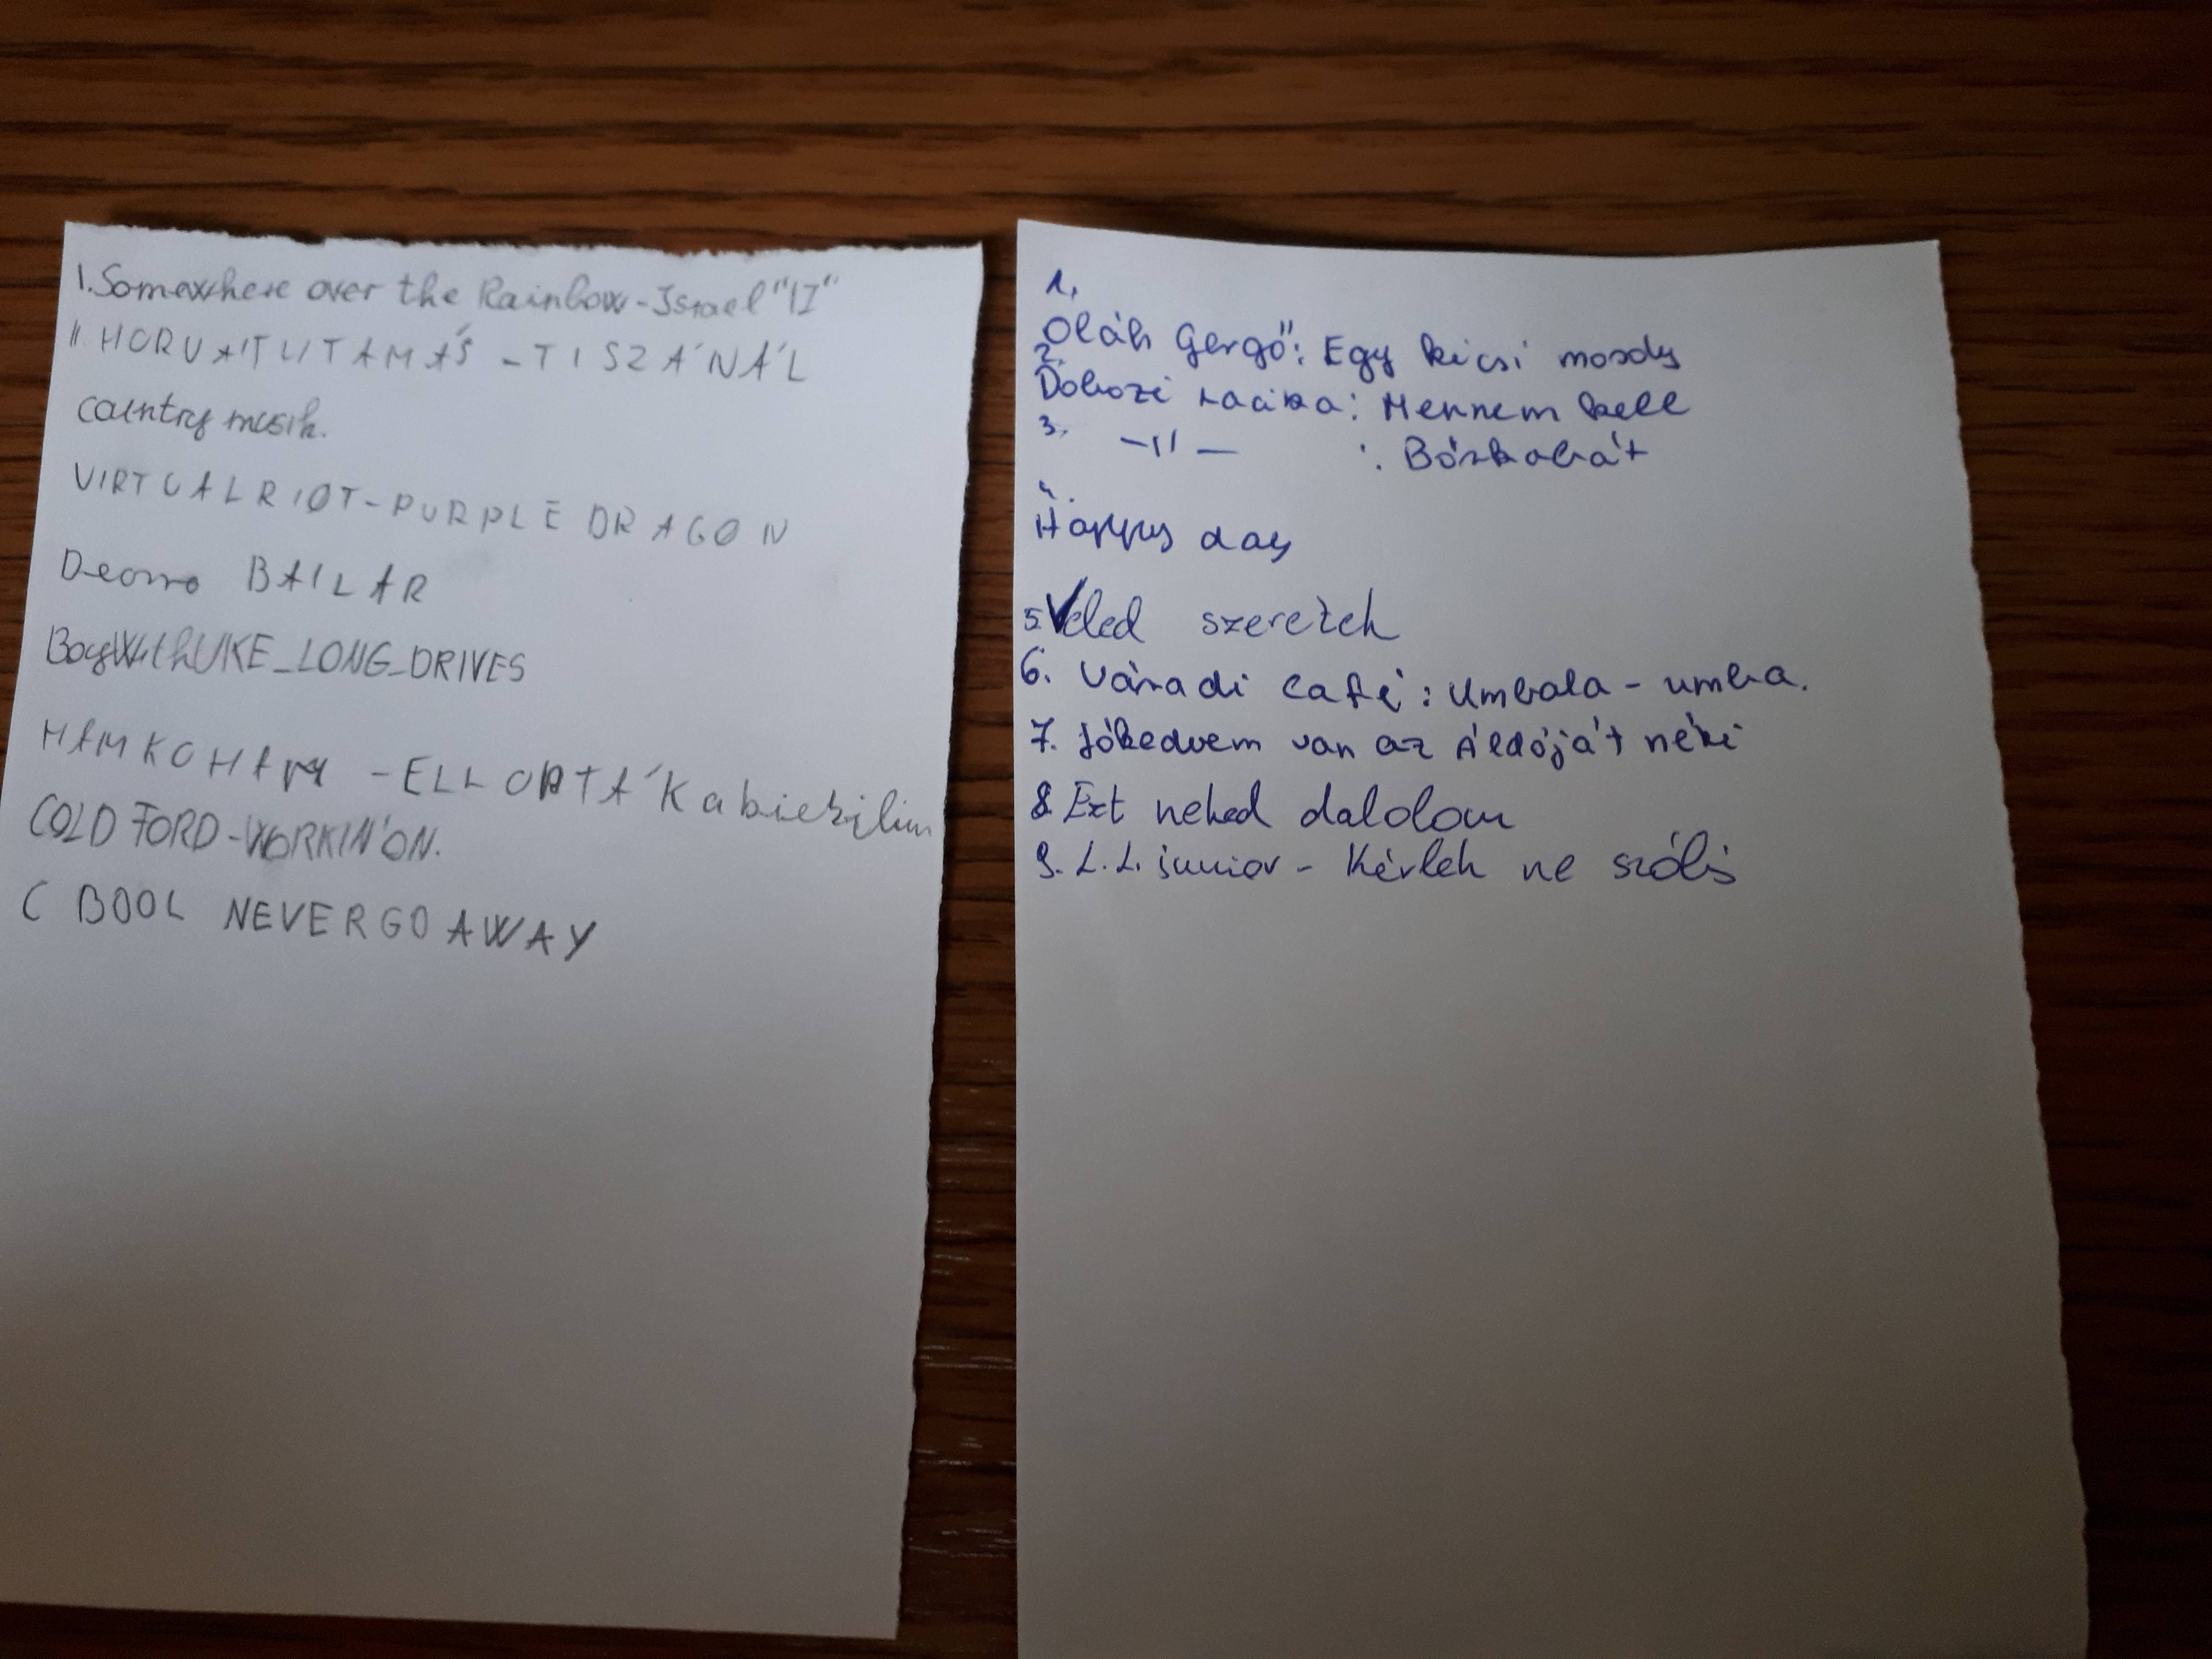 1. Somewhere over the Rainbow - Israel "IZ"
II. HORVAITUTAMÁS - TISZÁNÁL
Country musik.
VIRTUALRIOT - PURPLE DRAGON
Deorro BAILAR
BoyWithUKE_LONG_DRIVES
HAMKOHAM - ELLOPTÁK a biciklim
COLD FORD - WORKIN'ON.
C BOOL NEVER GO AWAY
1.
Oláh Gergő: Egy kicsi mosoly
2.
Dobozi Lacika: Mennem kell
3. -〃- : Bőrkabát
4.
Happy day
5. Veled szeretek
6. Váradi Café: Umbala - umba.
7. Jókedvem van az Áldóját néki
8. Ezt neked dalolom
9. L.L. junior - Kérlek ne szólj